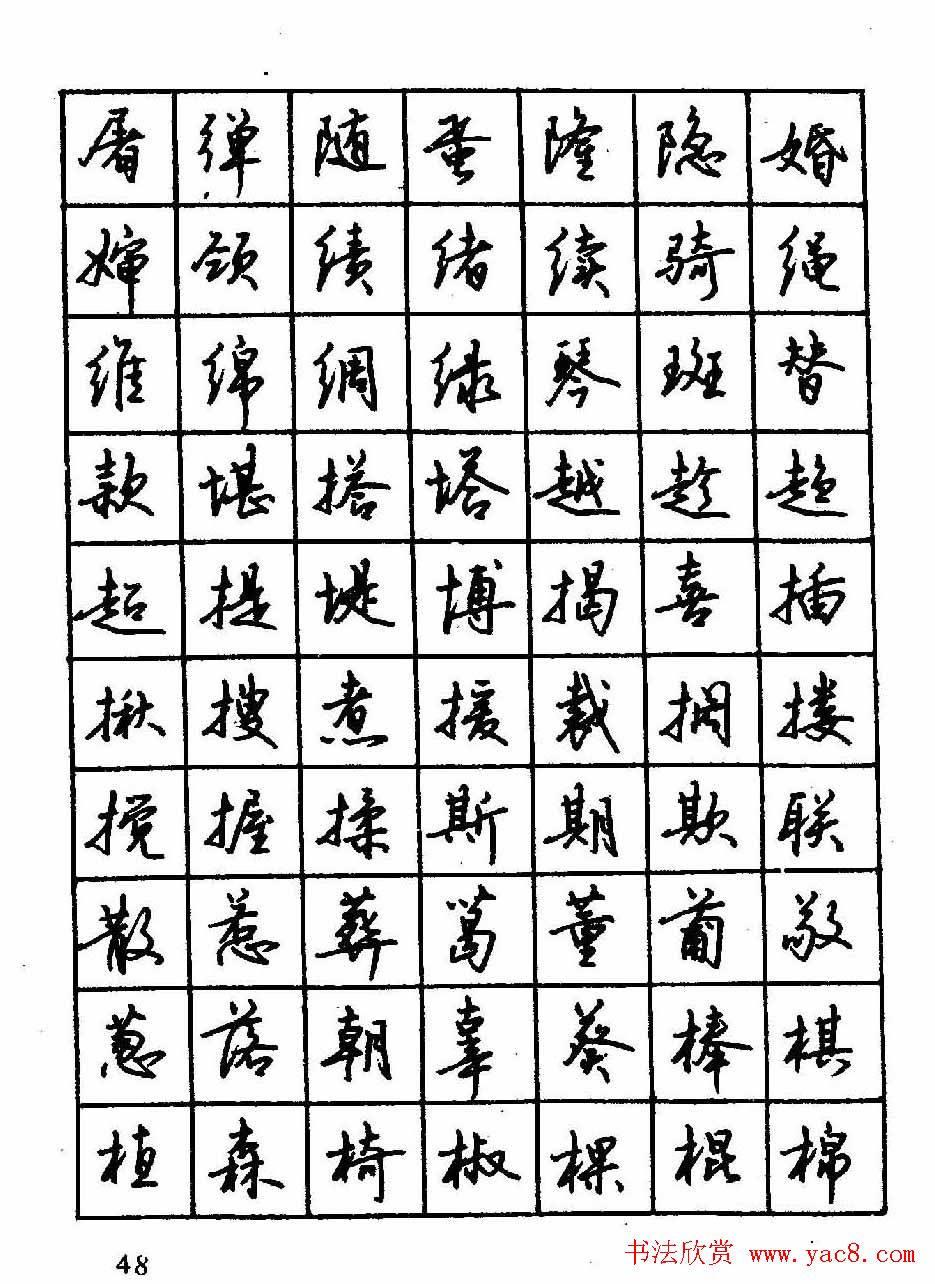 屠弹随蛋隆隐婚
婶颈绩绪续骑绳
维绵绸绿琴斑替
款堪搭塔越趁趋
超提堤博揭喜插
揪搜煮援裁搁搂
搅握揉斯期欺联
散惹葬葛董葡敬
葱落朝辜葵棒棋
植森椅椒棵棍棉
48
书法欣赏 www.yac8.com